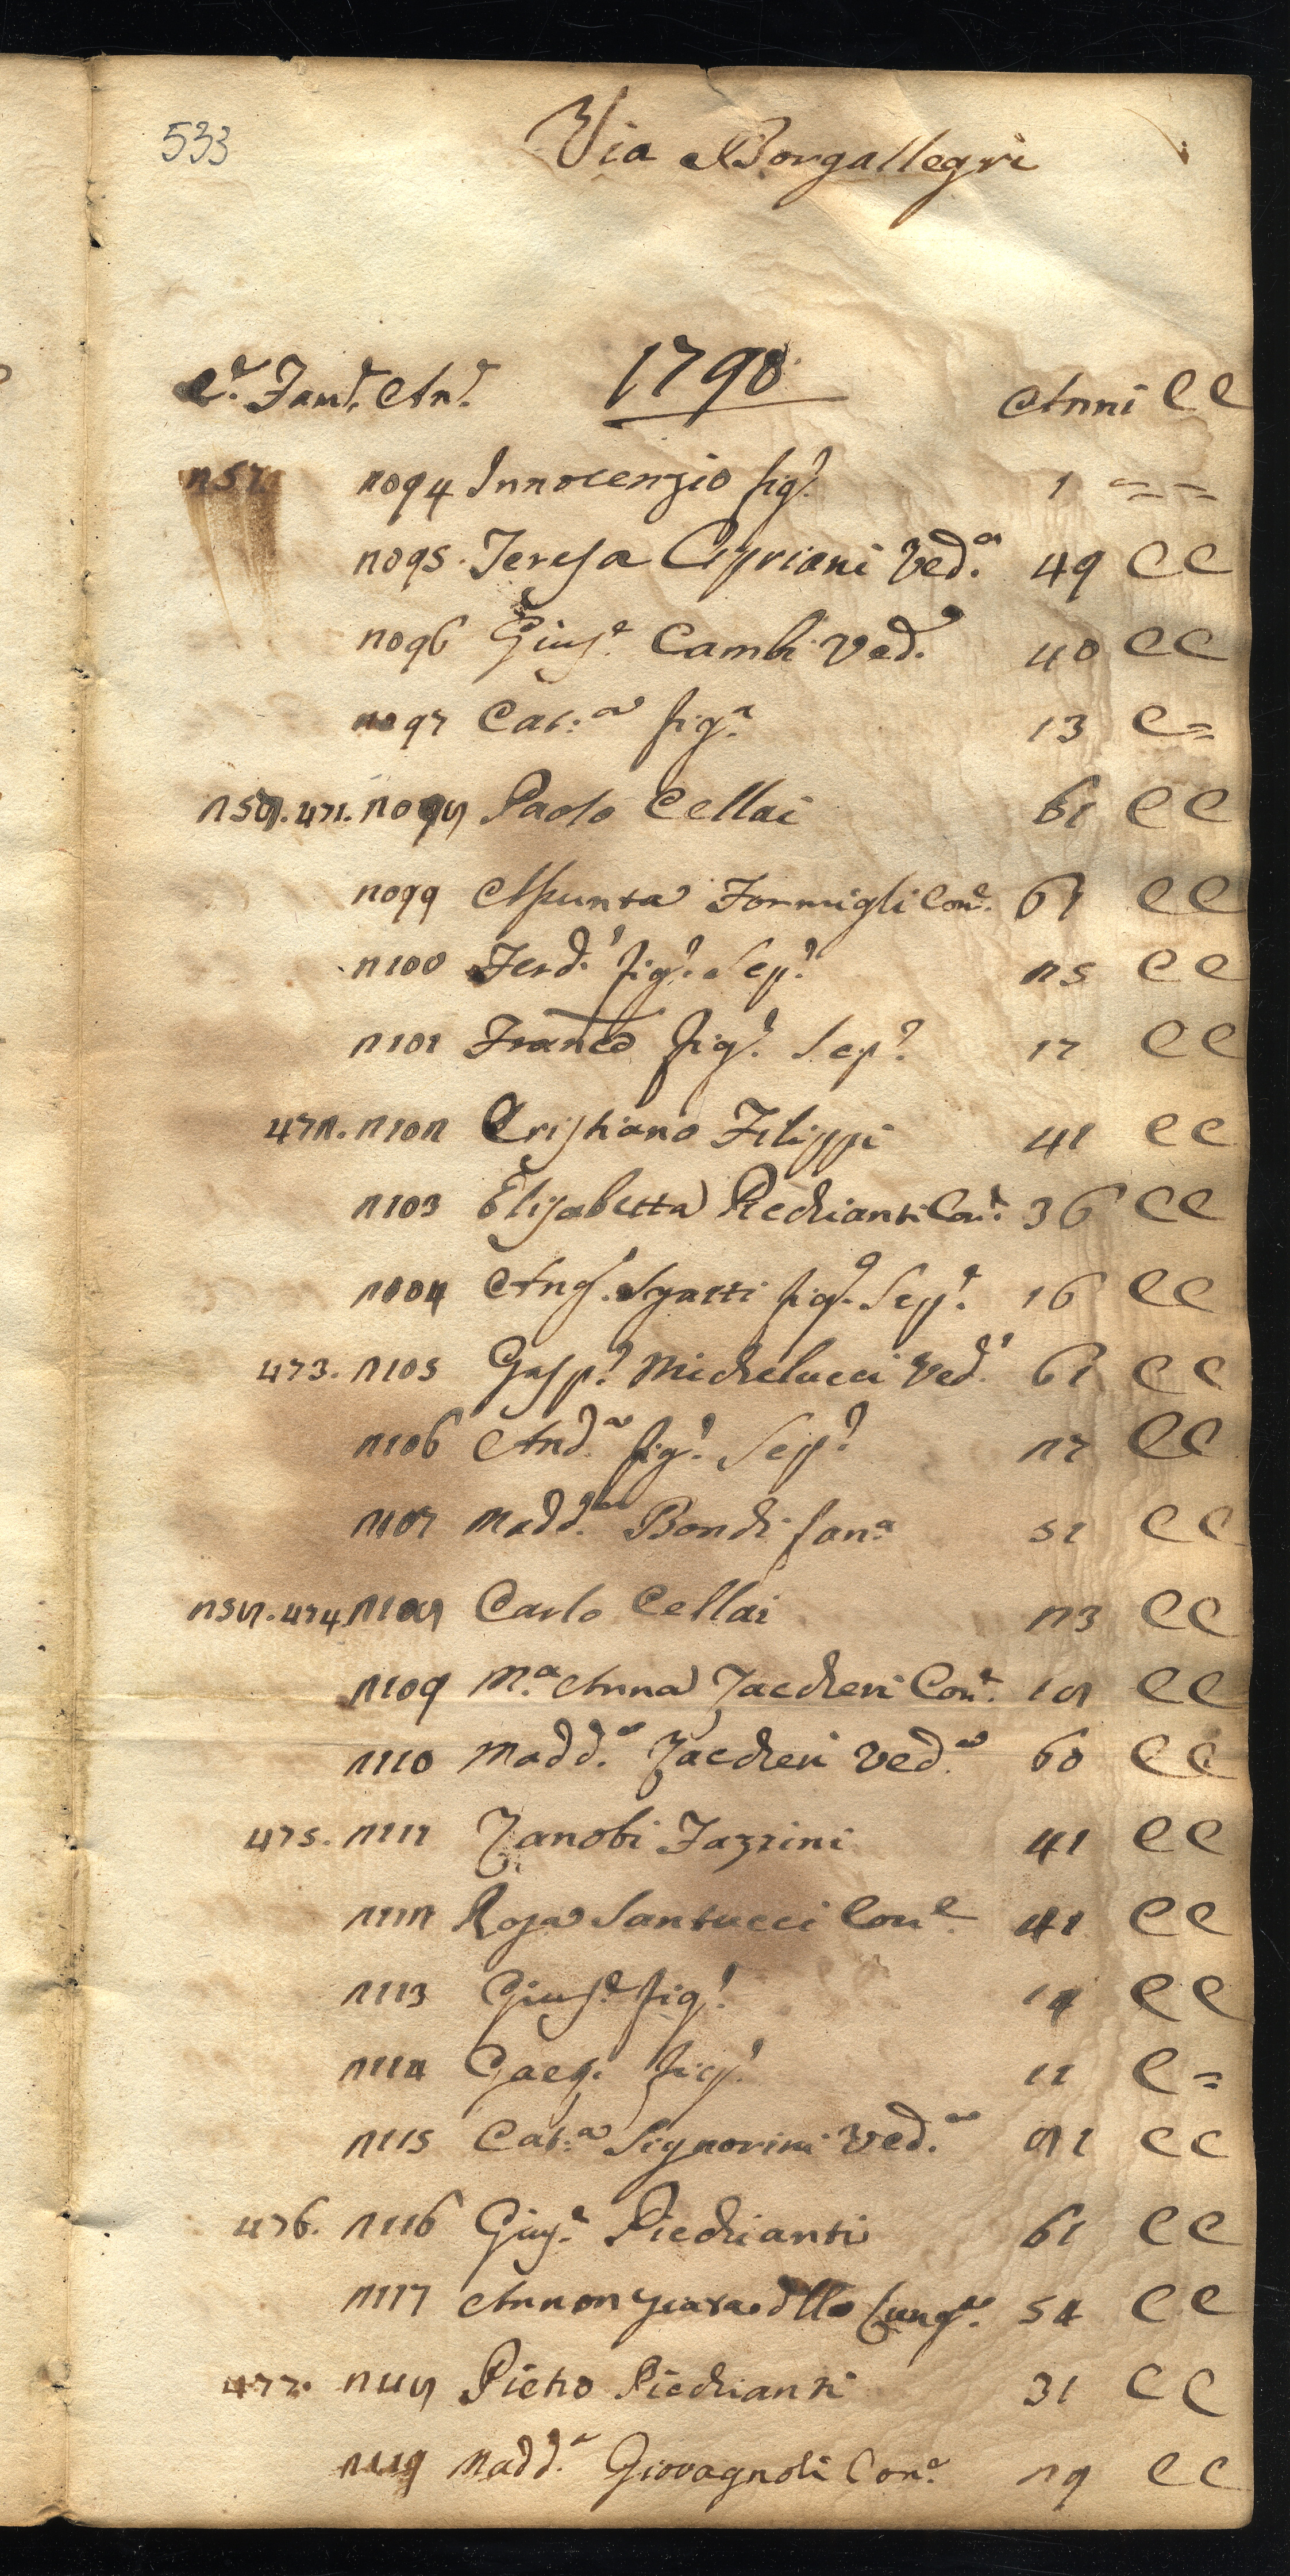 533
Via Borgallegri
C.e Fam.e An.e 1798 Anni C C
257 2094 Innocenzio fig.o 1 = =
2095. Teresa Cipriani Ved.a 49 C C
2096 Gius.e Cambi Ved.o 40 C C
2097 Cat:a fig.a 13 C =
258. 471. 2098 Paolo Cellai 61 C C
2099 Assunta Formigli Con.e 61 C C
2100 Ferd.o fig.o Sep.o 25 C C
2101 Franco fig.o Sep.o 17 C C
472. 2102 Cristiano Filippi 41 C C
2103 Elisabetta Piechianti Con.e 36 C C
2104 Ang.o Sgatti fig.o Sep.o 16 C C
473. 2105 Gasp.o Michelucci Ved.o 61 C C
2106 And.a fig.o Sep.o 27 C C
2107 Madd.a Bonchi fan.a 51 C C
258. 474. 2108 Carlo Cellai 23 C C
2109 M.a Anna Zaccheri Con.e 18 C C
2110 Madd.a Zaccheri Ved.a 60 C C
475. 2111 Zanobi Fazzini 41 C C
2112 Rosa Santucci Con.e 41 C C
2113 Gius.e fig.o 14 C C
2114 Gaeg. fig.o 11 C =
2115 Cat:a Signorini Ved.a 81 C C
476. 2116 Gius.e Piechianti 61 C C
2117 Annonziata dlla Lung.a 54 C C
477. 2118 Pietro Piechianti 31 C C
2119 Madd.a Giovagnoli Con.e 29 C C